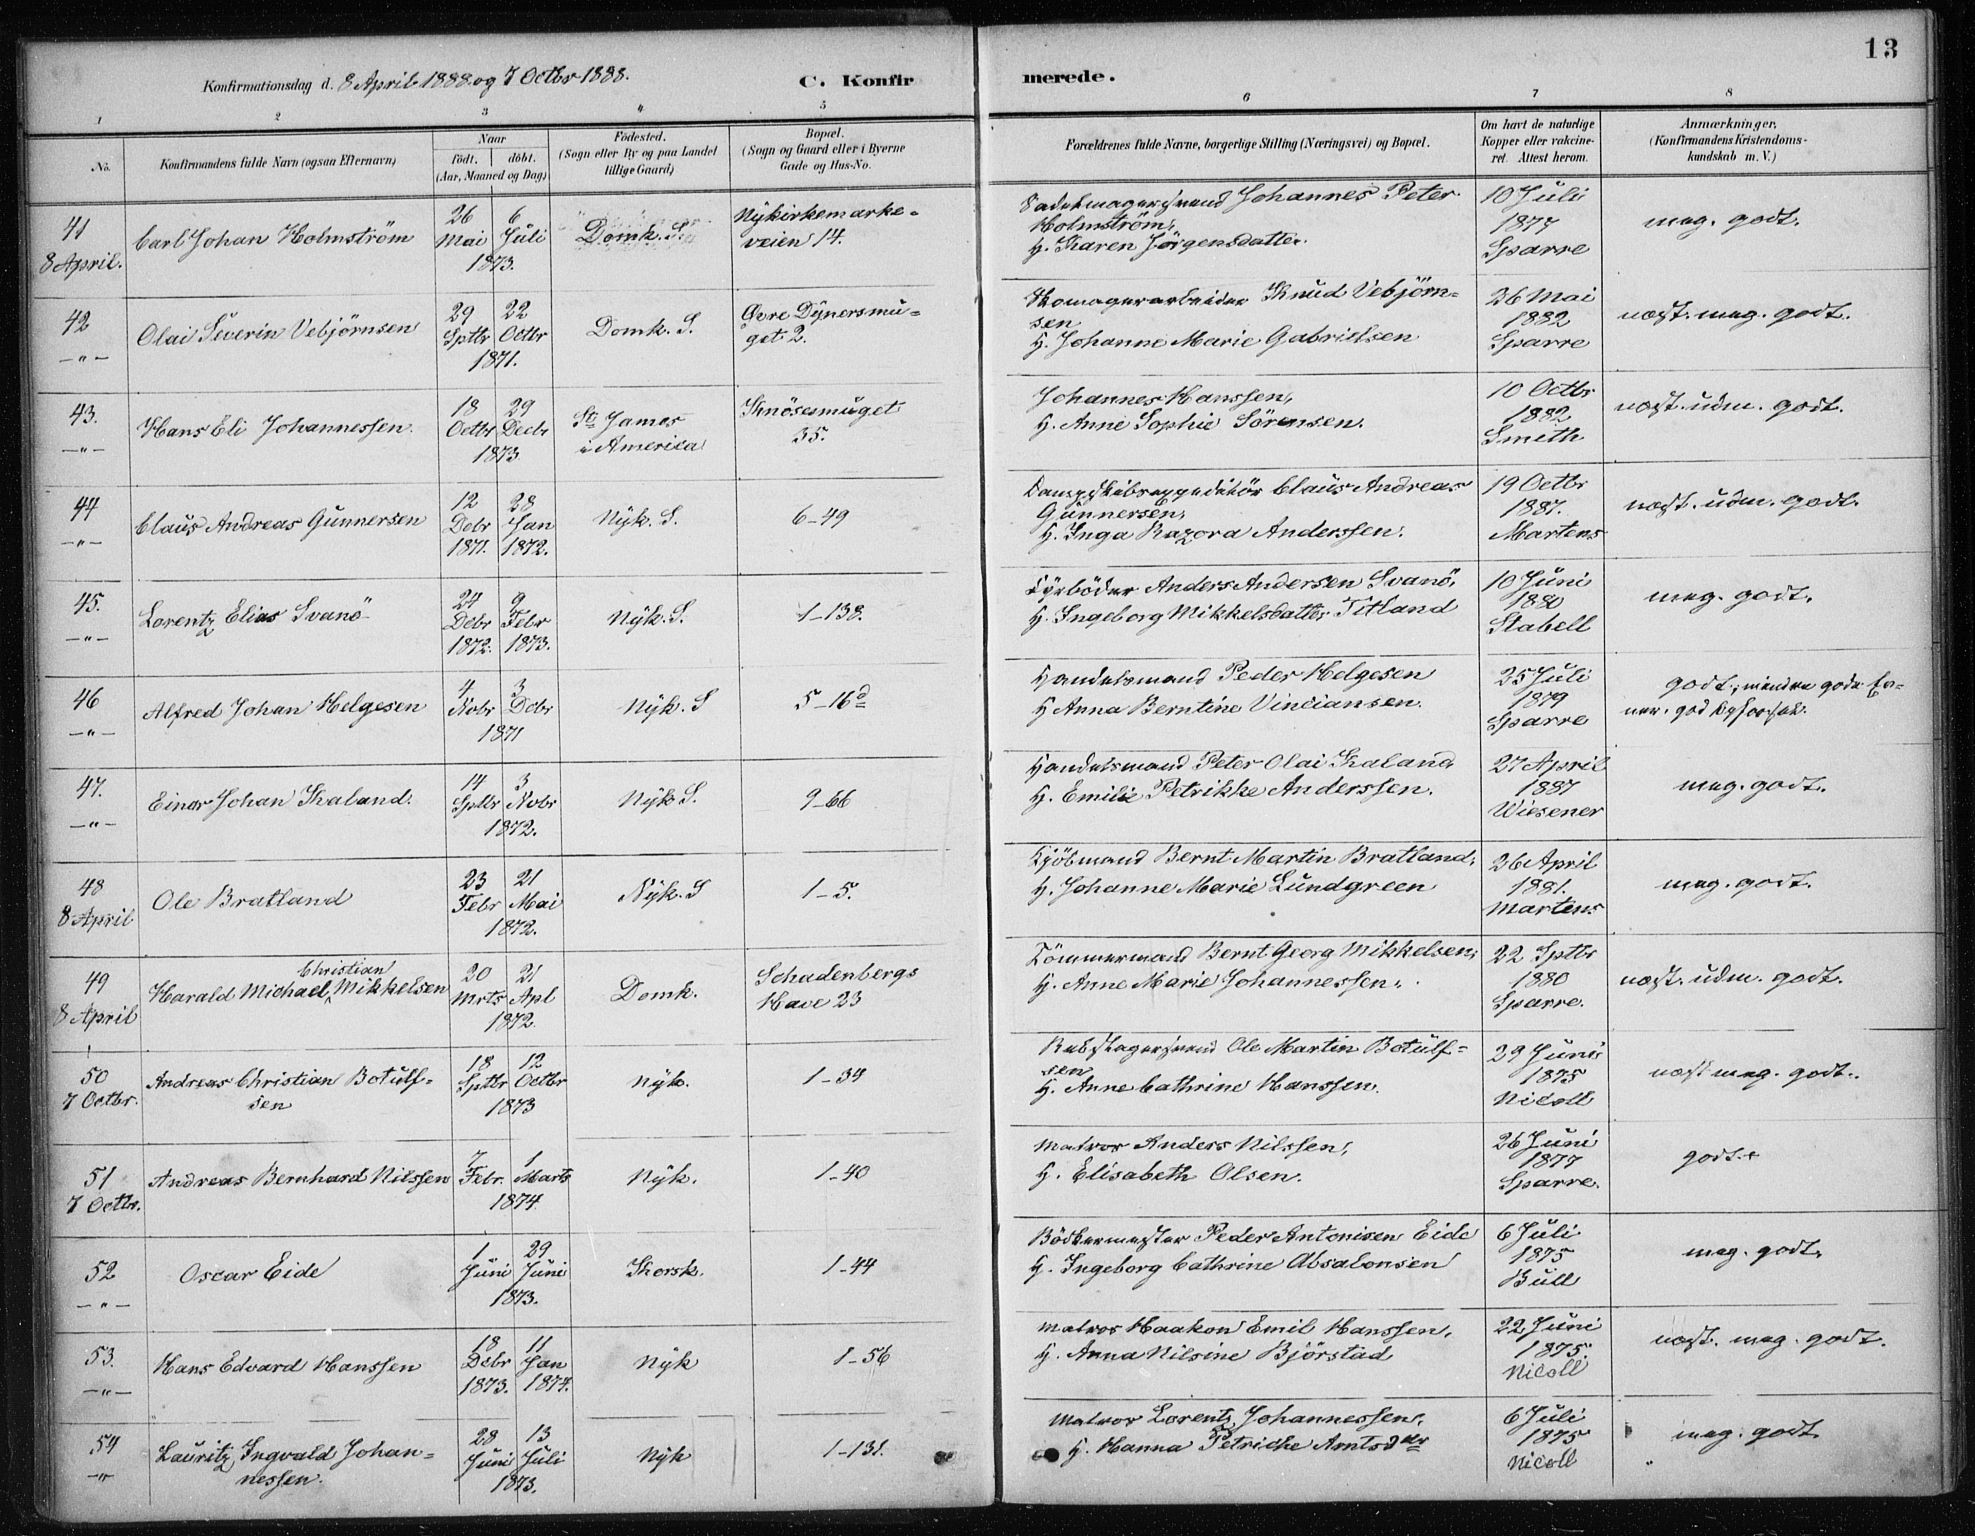 13
Konfirmationsdag d. 8 April 1888 og 7 Octbr 1888.
C. Konfirmerede.
1 2 3 4 5 6 7 8
No.
Konfirmandens fulde Navn (ogsaa Efternavn)
Naar
födt. döbt.
(Aar, Maaned og Dag)
Födested.
(Sogn eller By og paa Landet
tillige Gaard)
Bopæl.
(Sogn og Gaard eller i Byerne
Gade og Hus-No.
Forældrenes fulde Navne, borgerlige Stilling (Næringsvei) og Bopæl.
Om havt de naturlige
Kopper eller vakcine-
ret. Attest herom.
Anmærkninger,
(Konfirmandens Kristendoms-
kundskab m. V.)
41
8 April.
Carl Johan Holmström
26 Mai 6 Juli
1873.
Domk. S.
Nykirkemarke-
veien 14.
Sadelmagersvend Johannes Peter
Holmström,
H. Karen Jörgensdatter.
10 Juli
1877
Sparre
meg. godt.
42
—"—
Olai Severin Vebjörnsen
29 Sptbr 22 Octbr
1871.
Domk. S.
Øvre Dynersmu-
get 2.
Skomagerarbeider Knud Vebjörn-
sen
H. Johanne Marie Gabrielsen
26 Mai
1882
Sparre
næst. meg. godt.
43.
—"—
Hans Eli Johannessen
18 Octbr 29 Decbr
1873
St. James
i America
Knösesmuget
35.
Johannes Hanssen,
H. Anne Sophie Sörensen.
10 Octbr
1882
Smith
næst. udm. godt.
44
—"—
Claus Andreas Gunnersen
12 Debr 1871. 28 Jan 1872.
Nyk. S.
6-49
Dampskibsexpeditör Claus Andreas
Gunnersen,
H. Inga Razora Anderssen.
19 Octbr
1887.
Martens
næst. udm. godt.
45.
—"—
Lorentz Elias Svanö
24 Debr 1872. 9 Febr 1873.
Nyk. S.
1-138.
Fyrböder Anders Andersen Svanö,
H. Ingeborg Mikkelsdatter Titland
10 Juni
1880
Stabell
meg. godt.
46
—"—
Alfred Johan Helgesen
4 Nobr 3 Debr
1871
Nyk. S
5-16d
Handelsmand Peder Helgesen
H Anna Berntine Vinciansen.
25 Juli
1879
Sparre
godt; mindre gode Ev-
ner. god Opförsel.
47.
—"—
Einar Johan Kaland.
14 Sptbr 3 Nobr
1872.
Nyk S.
9-66
Handelsmand Peter Olai Kaland,
H. Emilie Petrikke Anderssen.
27 April
1887
Wiesener
meg. godt.
48
8 April
Ole Bratland
23 Febr 21 Mai
1872.
Nyk. S
1-5.
Kjöbmand Bernt Martin Bratland,
H. Johanne Marie Lundgreen
26 April
1881.
Martens
meg. godt.
49
8 April
Christian
Harald Michael Mikkelsen
20 Mrts 21 Apl
1872.
Domk.
Schadenbergs
Have 23
Tömmermand Bernt Georg Mikkelsen,
H. Anne Marie Johannessen.
22 Sptbr
1880
Sparre.
næst. udm. godt.
50
7 Octbr.
Andreas Christian Botulf-
sen
18 Sptbr 12 Octbr
1873
Nyk.
1-34
Rebslagersvend Ole Martin Botulf-
sen
H. Anne Cathrine Hanssen.
29 Juni
1875
Nicoll
næst meg. godt.
51
7 Octbr.
Andreas Bernhard Nilssen
7 Febr. 1 Marts
1874
Nyk.
1-40
Matros Anders Nilssen,
H. Elisabeth Olsen.
26 Juni
1877
Sparre.
godt+
52
—"—
Oscar Eide
1 Juni 29 Juni
1873.
Korsk.
1-44
Bödkermester Peder Antonisen Eide
H. Ingeborg Cathrine Absalonsen
6 Juli
1875
Bull
meg. godt.
53.
—"—
Hans Edvard Hanssen
18 Debr 1873. 11 Jan 1874.
Nyk
1-56
Matros Haakon Emil Hanssen,
H. Anna Nilsine Björstad
22 Juni
1875.
Nicoll
næst. meg. godt.
54
—"—
Lauritz Ingvald Johan-
nessen.
28 Juni 13 Juli
1873.
Nyk
1-131.
Matros Lorentz Johannessen,
H. Hanna Petricke Amtsdtr
6 Juli
1875
Nicoll
meg. godt